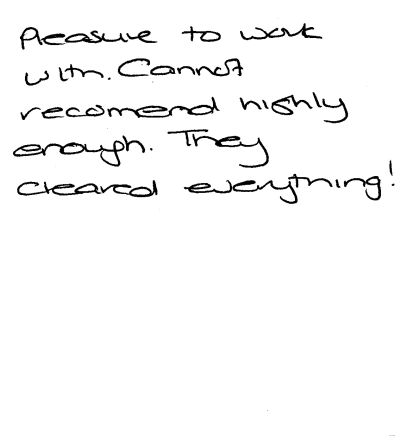 Pleasure to work
with. Cannot
recomend highly
enough. They
cleared everything!